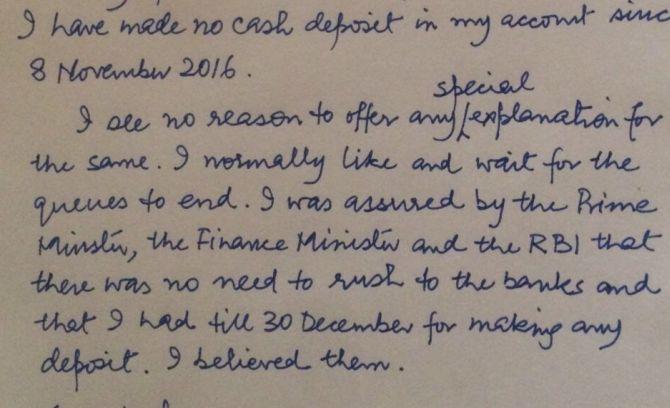 I have made no cash deposit in my account sinc
8 November 2016.
special
I see no reason to offer any explanation for
the same. I normally like and wait for the
queues to end. I was assured by the Prime
Minster, the Finance Minister and the RBI that
there was no need to rush to the banks and
that I had till 30 December for making any
deposit. I believed them.